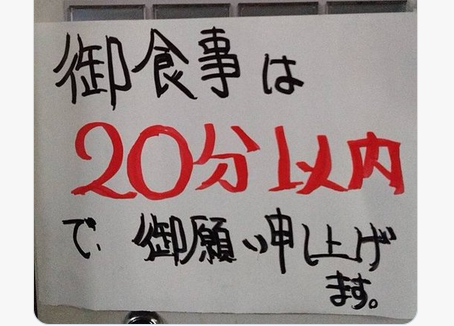 御食事は
20分以内
で、御願い申し上げ
ます。